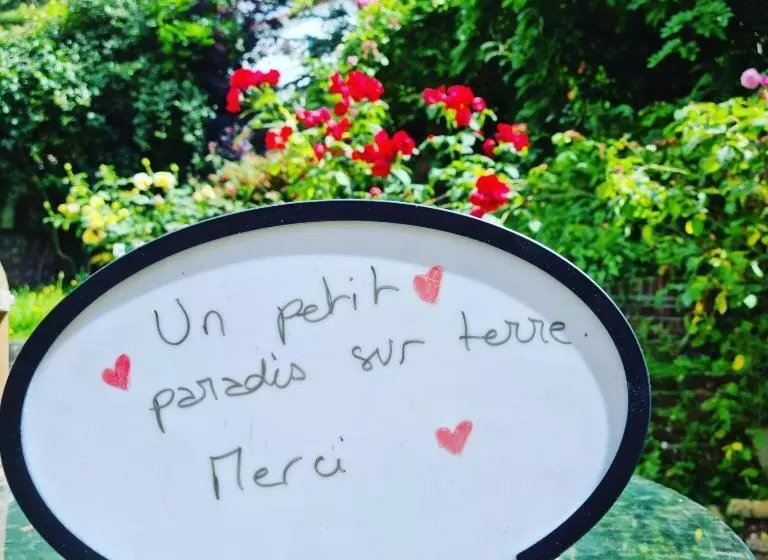 Un petit
paradis sur terre.
Merci